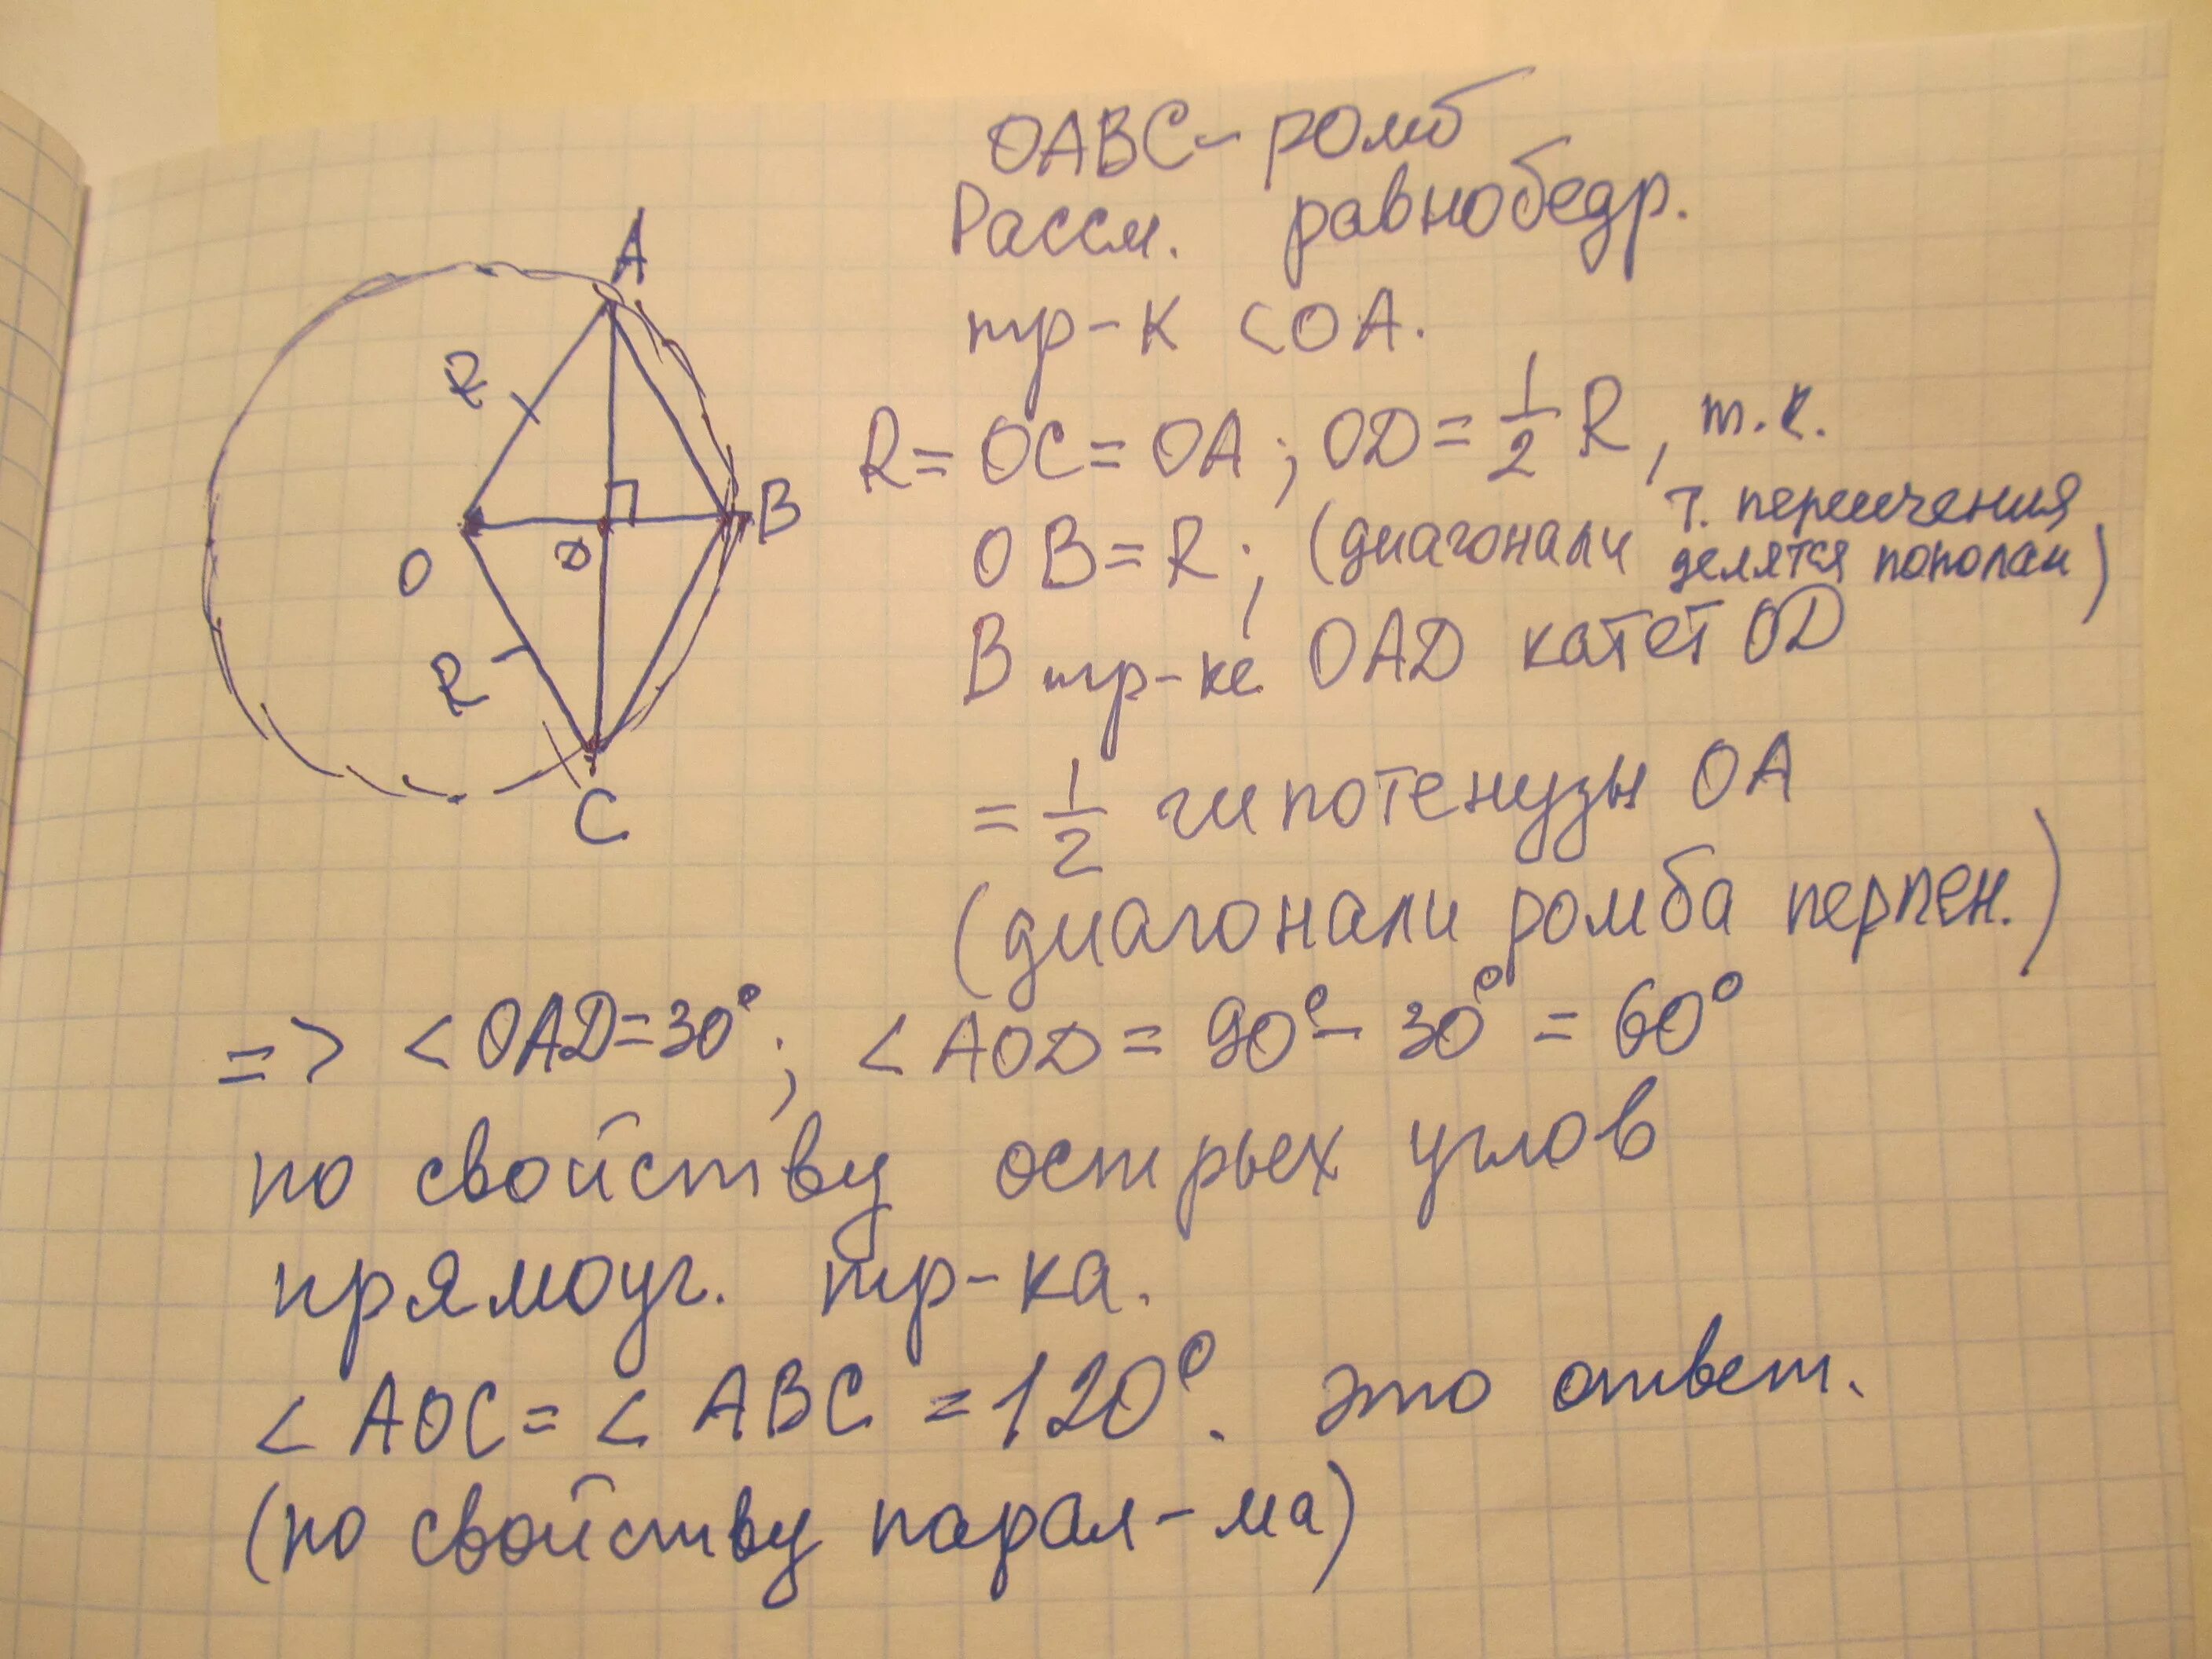 OABC - ромб
Рассм. равнобедр.
тр-к COA.
R = OC = OA; OD = 1/2 R, т.к.
OB = R; (диагонали т. пересечения делятся пополам)
В тр-ке OAD катет OD
= 1/2 гипотенузы OA
(диагонали ромба перпен.)
=> < OAD = 30°; < AOD = 90° - 30° = 60°
по свойству острых углов
прямоуг. тр-ка.
< AOC = < ABC = 120°. это ответ.
(по свойству парал-ма)
A
R
B
O
D
R
C